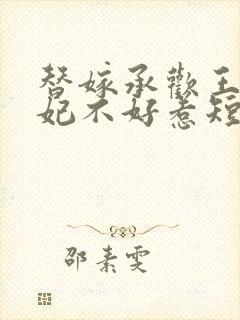 替嫁承歡王
妃不好惹短
邵素雯